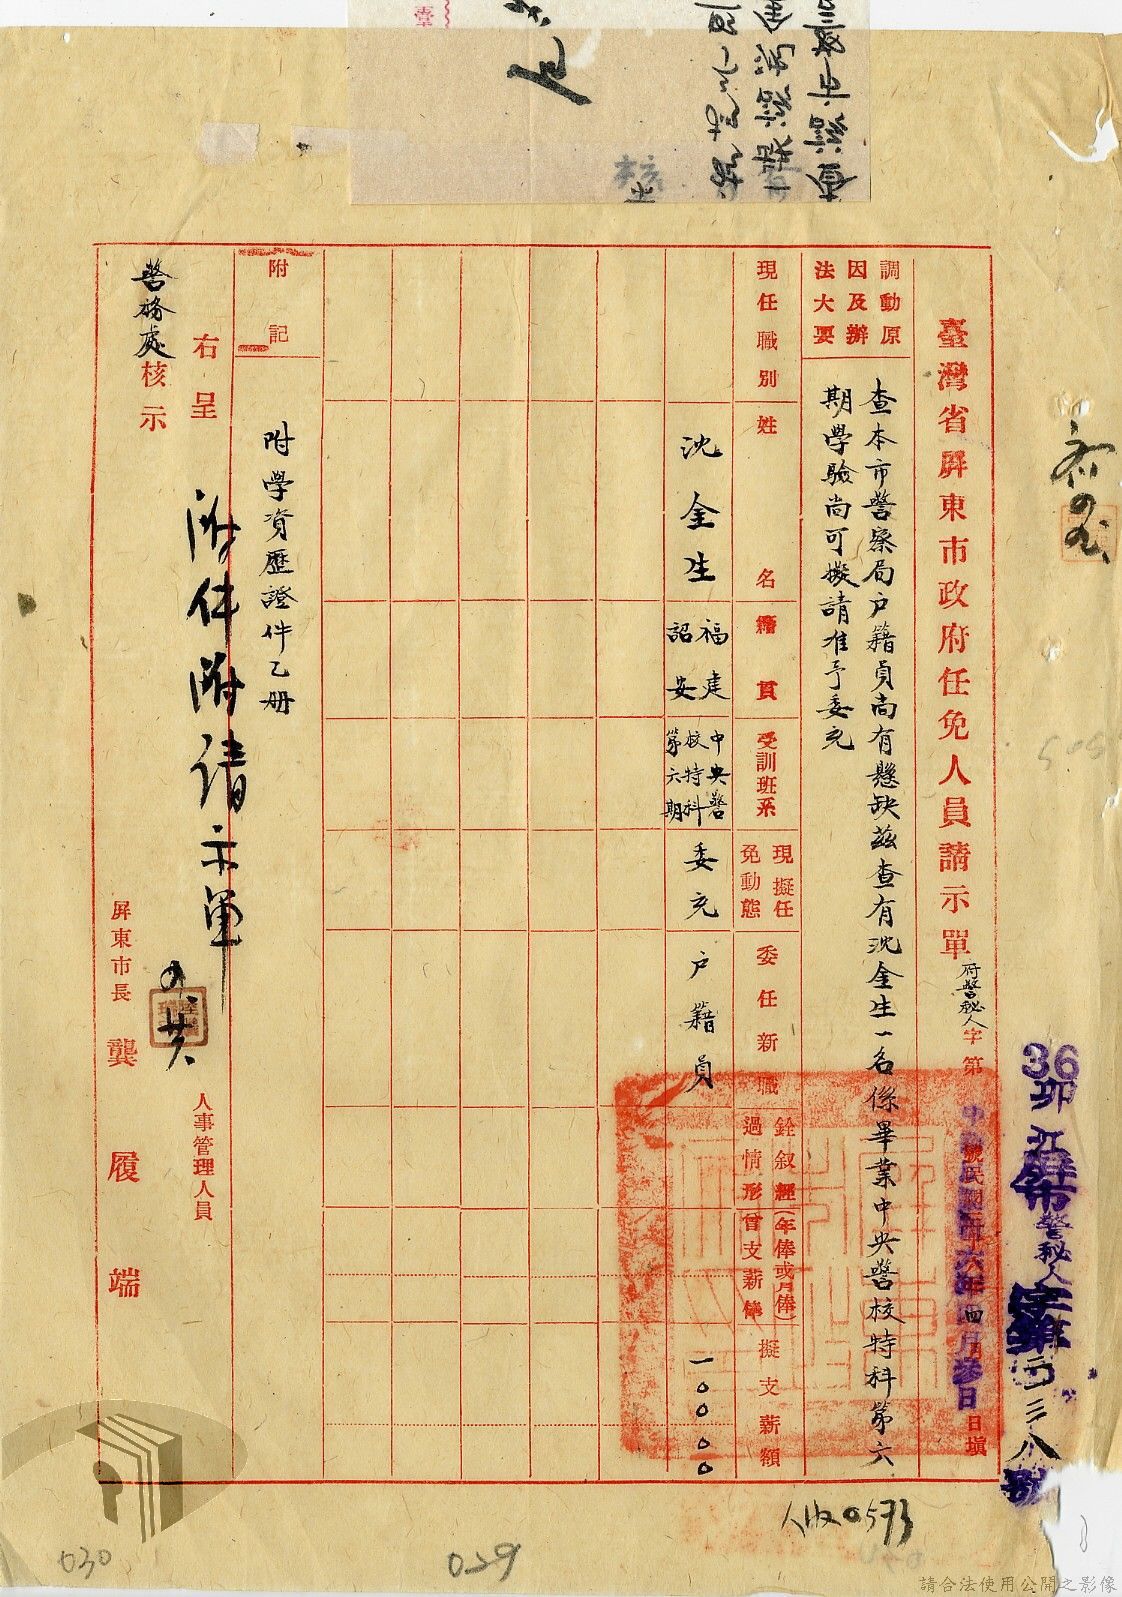 臺灣省屏東市政府任免人員請示單
府警秘人字第
號
中華民國卅六年四月參日
日填
36卯江屏市警秘人字第
三八號
調動原因及辦法大要
查本市警察局户籍員尚有懸缺茲查有沈金生一名係畢業中央警校特科第六
期學驗尚可擬請准予委充
現任職別
姓名
籍貫
受訓班系
現擬任免動態
委任新職
銓敘經過情形
(年俸或月俸)曾支薪俸
擬支薪額
沈金生
福建
詔安
中央警
校特科
第六期
委充
户籍員
一〇〇〇〇
附記
附學資歷證件乙册
右呈
警務處核示
附件附請示單
人事管理人員
屏東市長 龔履端
人收0573
029
030
請合法使用公開之影像